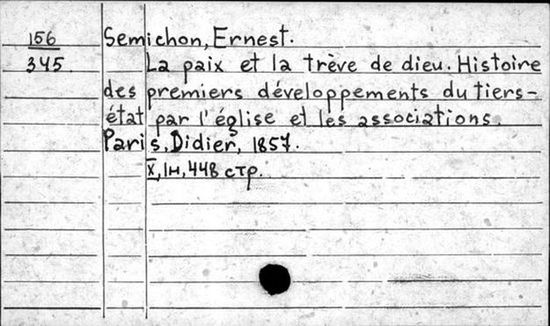 156 Semichon, Ernest.
345 La paix et la trève de dieu. Histoire
des premiers développements du tiers-
état par l'église et les associations.
Paris, Didier, 1857.
X, 1н, 448 стр.